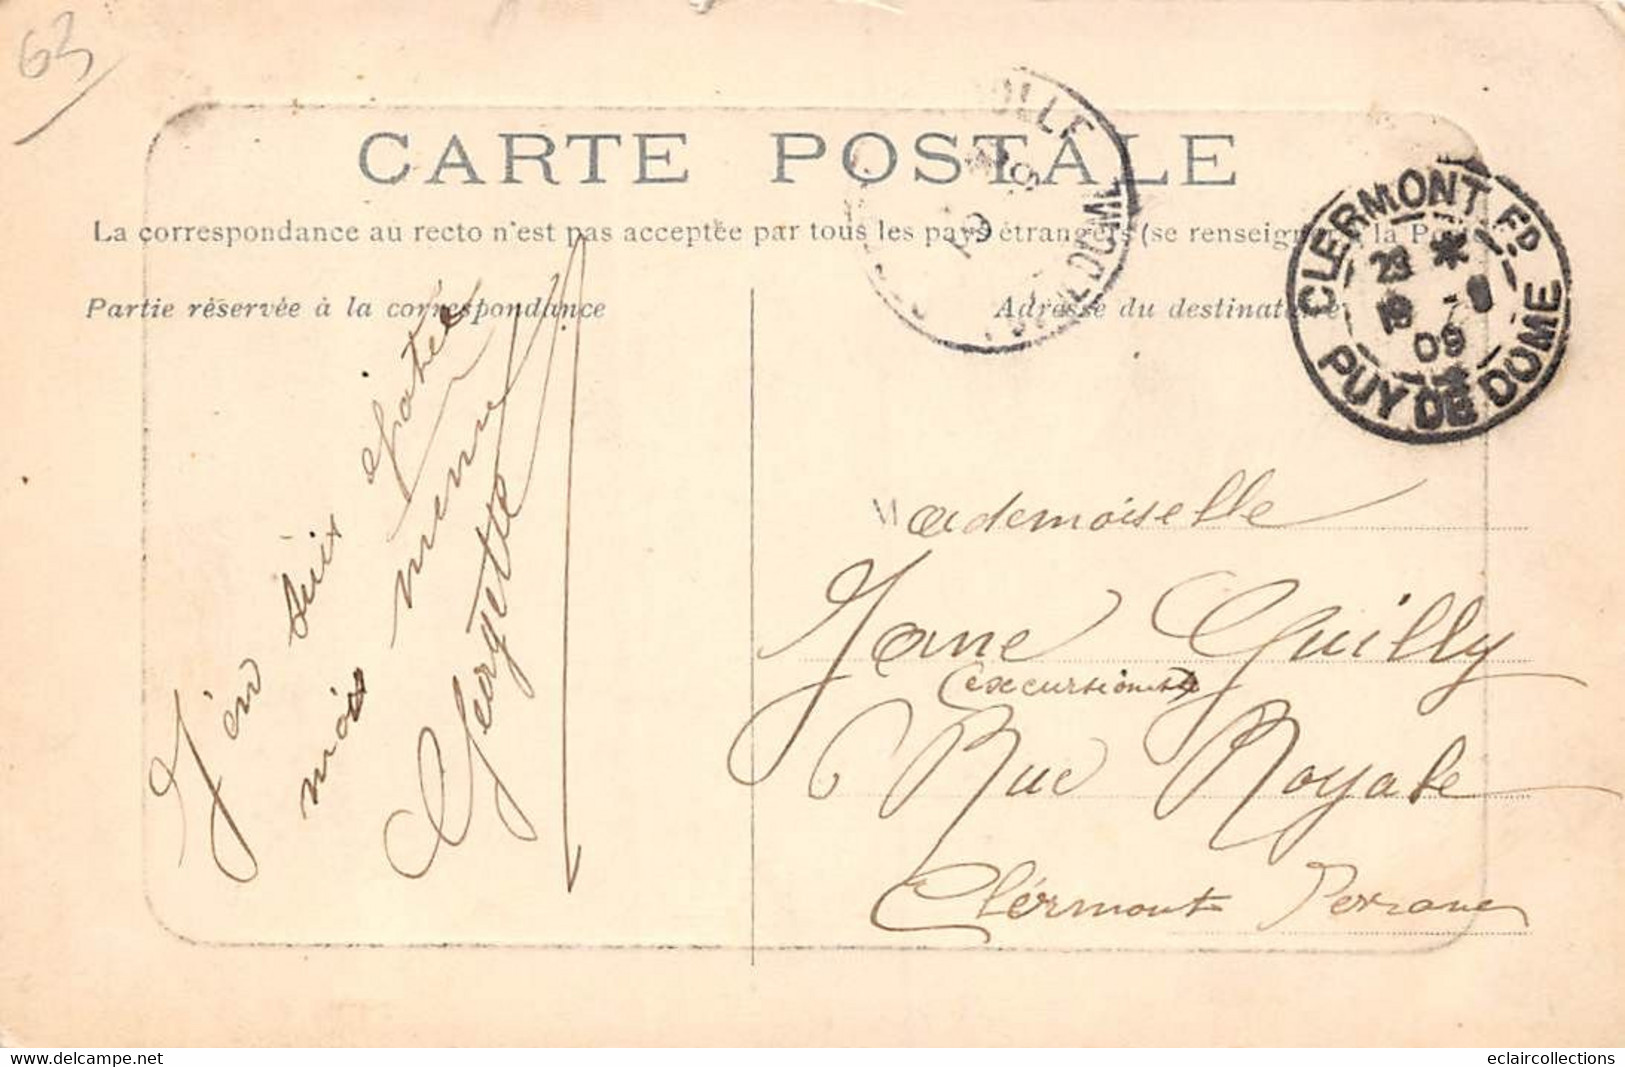 63
CARTE POSTALE
La correspondance au recto n'est pas acceptée par tous les pays étrangers (se renseigner à la Poste
Partie réservée à la correspondance
Adresse du destinataire
CLERMONT-FD
23 *
19 -7
09
PUY DE DOME
J'en suis épatée
moi même
Georgette
Mademoiselle
Jane Guilly
(excursioniste)
6 Rue Royale
Clérmont Ferrand
eclaircollections